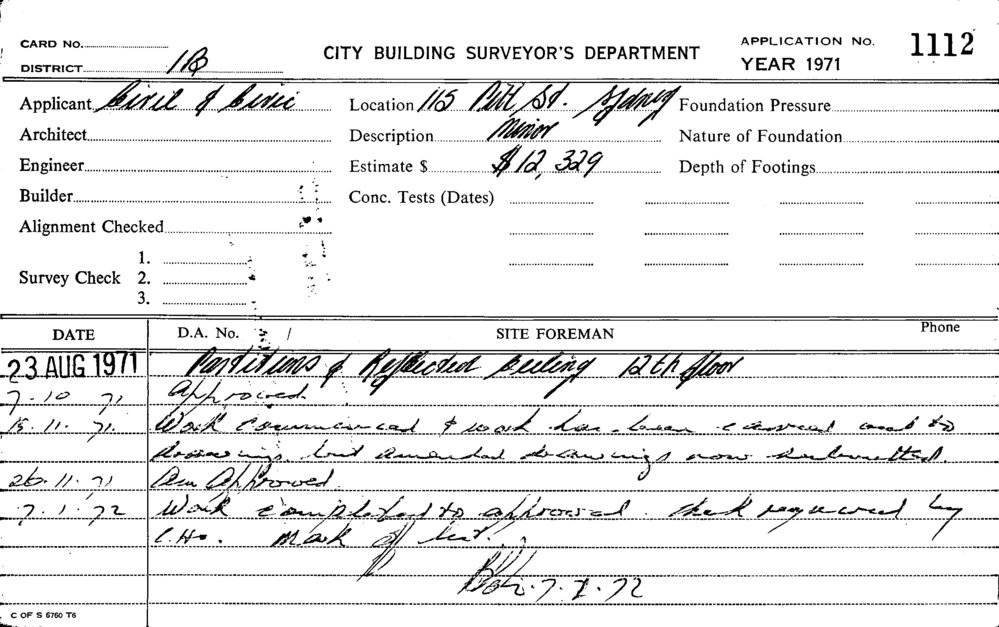 CARD No.
DISTRICT 1B
CITY BUILDING SURVEYOR'S DEPARTMENT
APPLICATION No. 1112
YEAR 1971
Applicant Civil & Civic
Location 115 Pitt St. Sydney
Foundation Pressure
Architect
Description Minor
Nature of Foundation
Engineer
Estimate $ $12,329
Depth of Footings
Builder
Conc. Tests (Dates)
Alignment Checked
Survey Check
1.
2.
3.
DATE
D.A. No. /
SITE FOREMAN
Phone
23 AUG 1971 Partitions & Reflected Ceiling 12th floor
7-10 71 Approved.
15.11.71. Work commenced & work has been carried out to
drawings, but amended drawings now submitted.
26.11.71 Approved
7.1.72 Work completed to approval. check required by
Mark off
7.1.72
C OF S 6760 T6